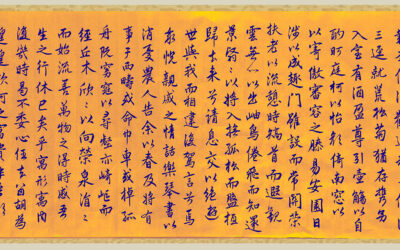 三逕就荒松菊猶存攜幼
入室有酒盈尊引壺觴以自
酌眄庭柯以怡顏倚南窗
以寄傲審容之膝易安園日
涉以成趣門雖設而常關策
扶老以流憩時矯首而遐觀
雲無心以出岫鳥倦飛而知還
景翳〻以將入撫孤松而盤桓
歸去來兮請息交以絕遊
世與我而相違復駕言兮焉
求悅親戚之情話樂琴書以
消憂農人告余以春及將有
事乎西疇或命巾車或棹孤
舟既窈窕以尋壑亦崎嶇而
經丘木欣〻以向榮泉涓〻
而始流善萬物之得時感吾
生之行休已矣乎寓形宇內
復幾時曷不委心任去留胡為